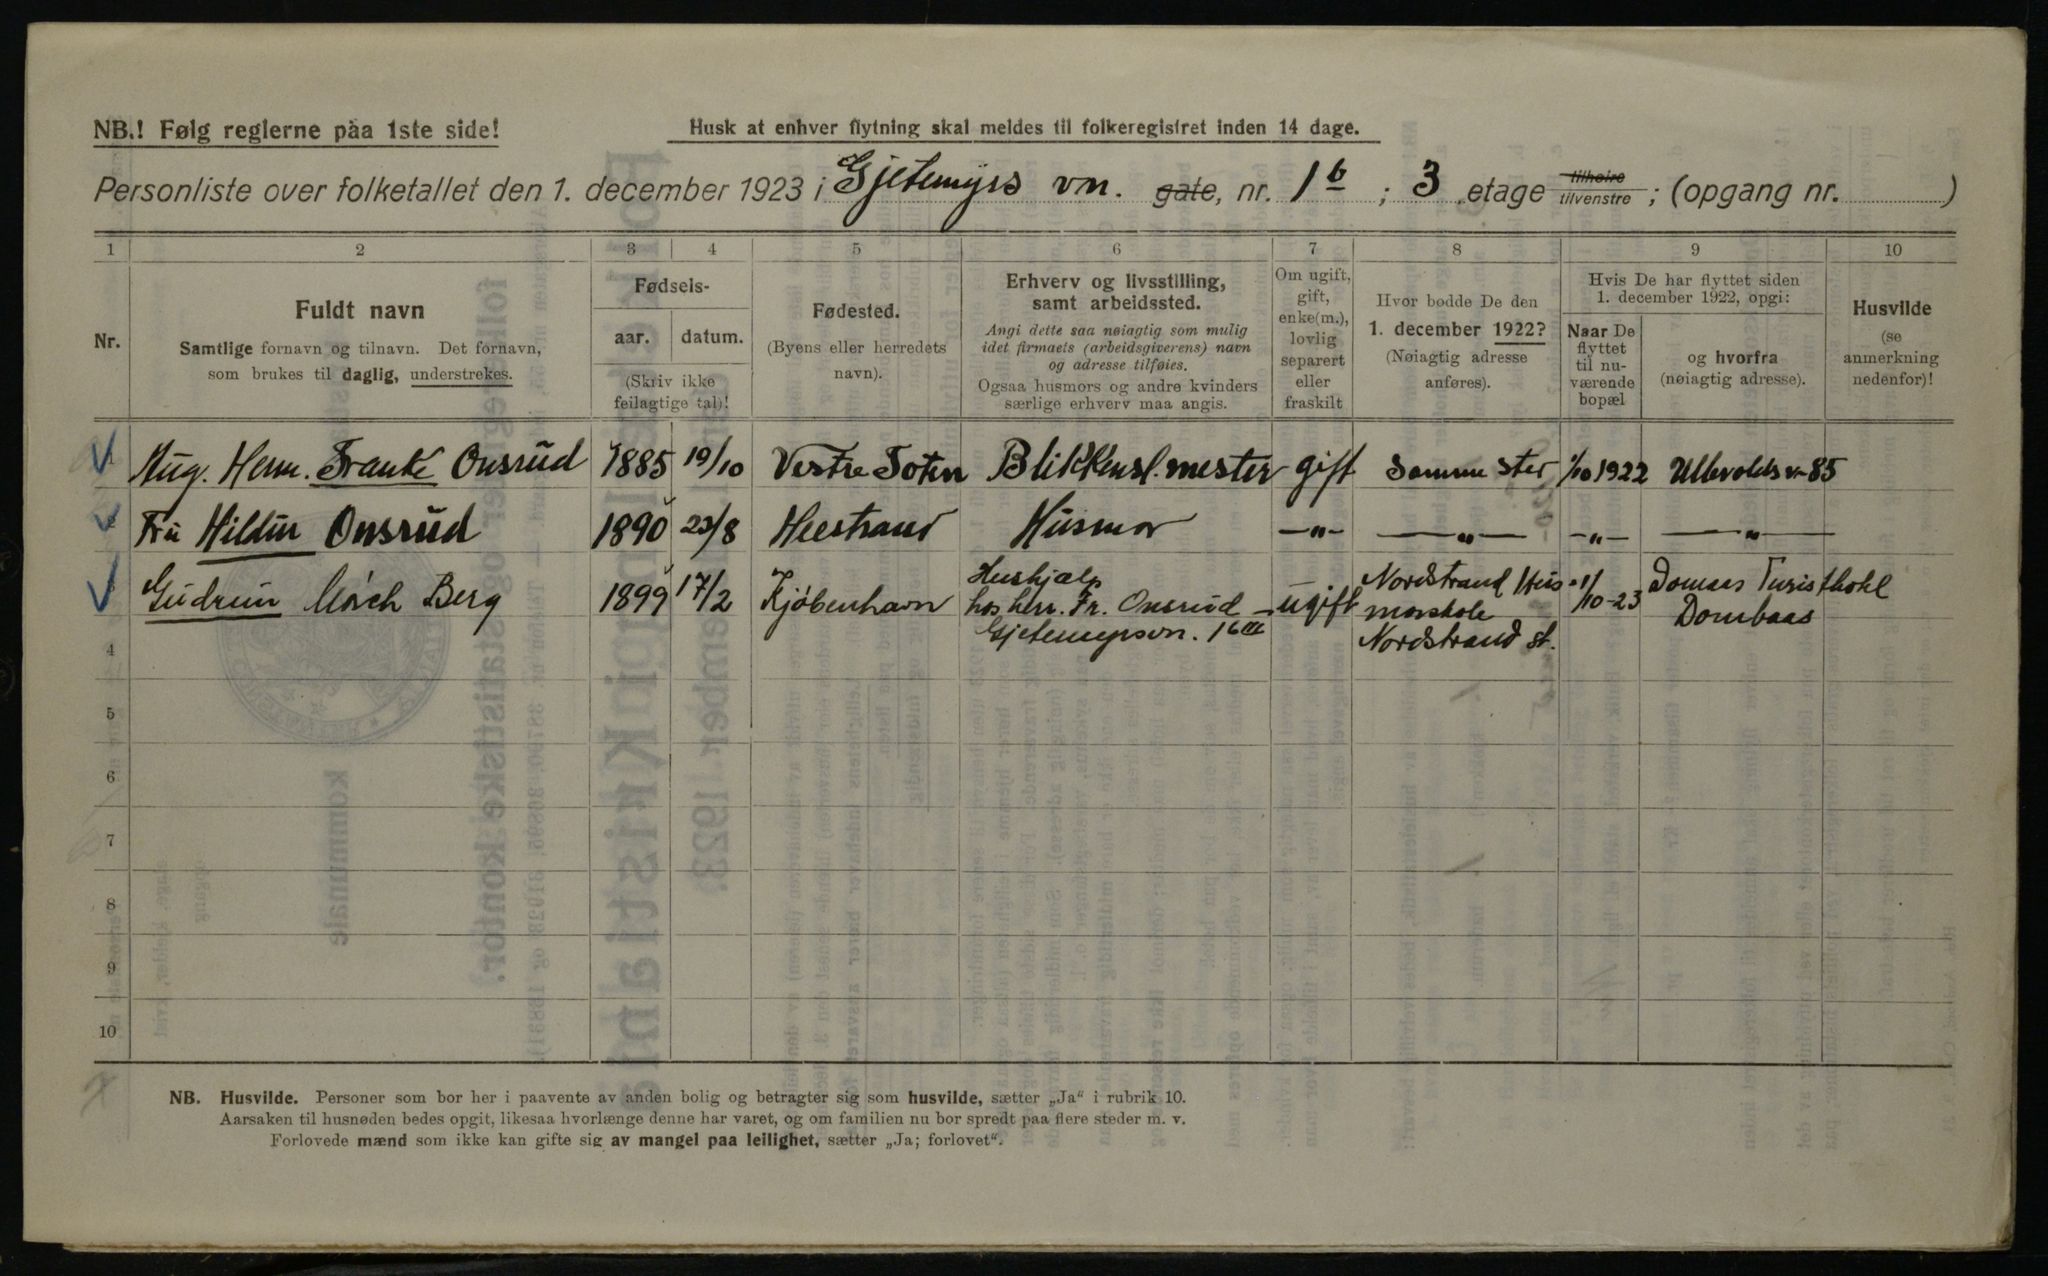 NB.! Følg reglerne paa 1ste side!
Husk at enhver flytning skal meldes til folkeregistret inden 14 dage.
Personliste over folketallet den 1. december 1923 i Gjetemyrs vn. gate, nr. 1b ; 3 etage tilhøire tilvenstre ; (opgang nr. )
1 2 3 4 5 6 7 8 9 10
Nr.
Fuldt navn
Samtlige fornavn og tilnavn. Det fornavn,
som brukes til daglig, understrekes.
Fødsels-
aar. datum.
(Skriv ikke
feilagtige tal)!
Fødested.
(Byens eller herredets
navn).
Erhverv og livsstilling,
samt arbeidssted.
Angi dette saa nøiagtig som mulig
idet firmaets (arbeidsgiverens) navn
og adresse tilføies.
Ogsaa husmors og andre kvinders
særlige erhverv maa angis.
Om ugift,
gift,
enke(m.),
lovlig
separert
eller
fraskilt
Hvor bodde De den
1. december 1922?
(Nøiagtig adresse
anføres).
Hvis De har flyttet siden
1. december 1922, opgi:
Naar De
flyttet
til nu-
værende
bopæl
og hvorfra
(nøiagtig adresse).
Husvilde
(se
anmerkning
nedenfor)!
1 Aug. Herm. Franke Onsrud 1885 19/10 Vestre Toten Blikkensl. mester gift Samme sted 1/10 1922 Ullevoldsv 85
2 Fru Hildur Onsrud 1890 23/8 Heestrand Husmor —„— —„— —„— —„—
3 Gudrun Mörch Berg 1899 17/2 Kjöbenhavn Hushjælp
hos herr. Fr. Onsrud
Gjetemyrsvn. 1b III
ugift Nordstrand Hus
morskole
Nordstrand st.
1/10-23 Domaas Turisthotel
Dombaas
4
5
6
7
8
9
10
NB. Husvilde. Personer som bor her i paavente av anden bolig og betragter sig som husvilde, sætter „Ja“ i rubrik 10.
Aarsaken til husnøden bedes opgit, likesaa hvorlænge denne har varet, og om familien nu bor spredt paa flere steder m. v.
Forlovede mænd som ikke kan gifte sig av mangel paa leilighet, sætter „Ja; forlovet“.